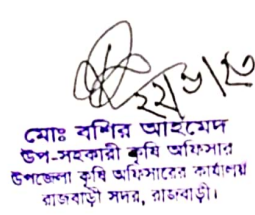 মোঃ বশির আহমেদ
উপ-সহকারী কৃষি অফিসার
উপজেলা কৃষি অফিসারের কার্যালয়
রাজবাড়ী সদর, রাজবাড়ী।